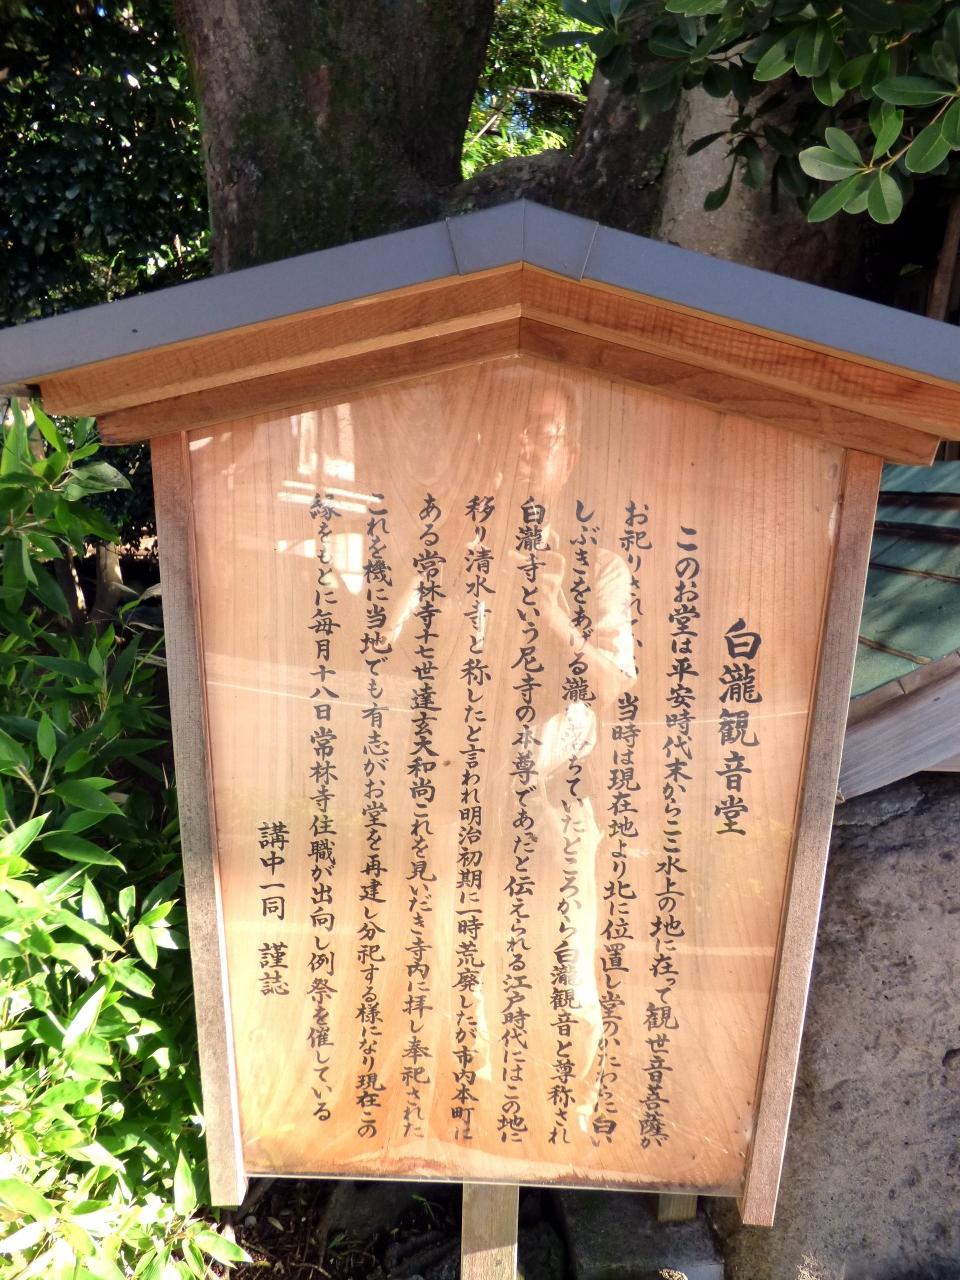 白瀧観音堂
このお堂は平安時代末からここ水上の地に在って観世音菩薩が
お祀りされて 当時は現在地より北に位置し堂のかたわらに白い
しぶきをあげる瀧が落ちていたところから白瀧観音と尊称され
白瀧寺という尼寺の本尊であったと伝えられる江戸時代にはこの地に
移り清水寺と称したと言われ明治初期に一時荒廃したが市内本町に
ある常林寺十七世達玄大和尚これを見いだき寺内に拝し奉祀された
これを機に当地でも有志がお堂を再建し分祀する様になり現在この
縁をもとに毎月十八日常林寺住職が出向し例祭を催している
講中一同 謹誌